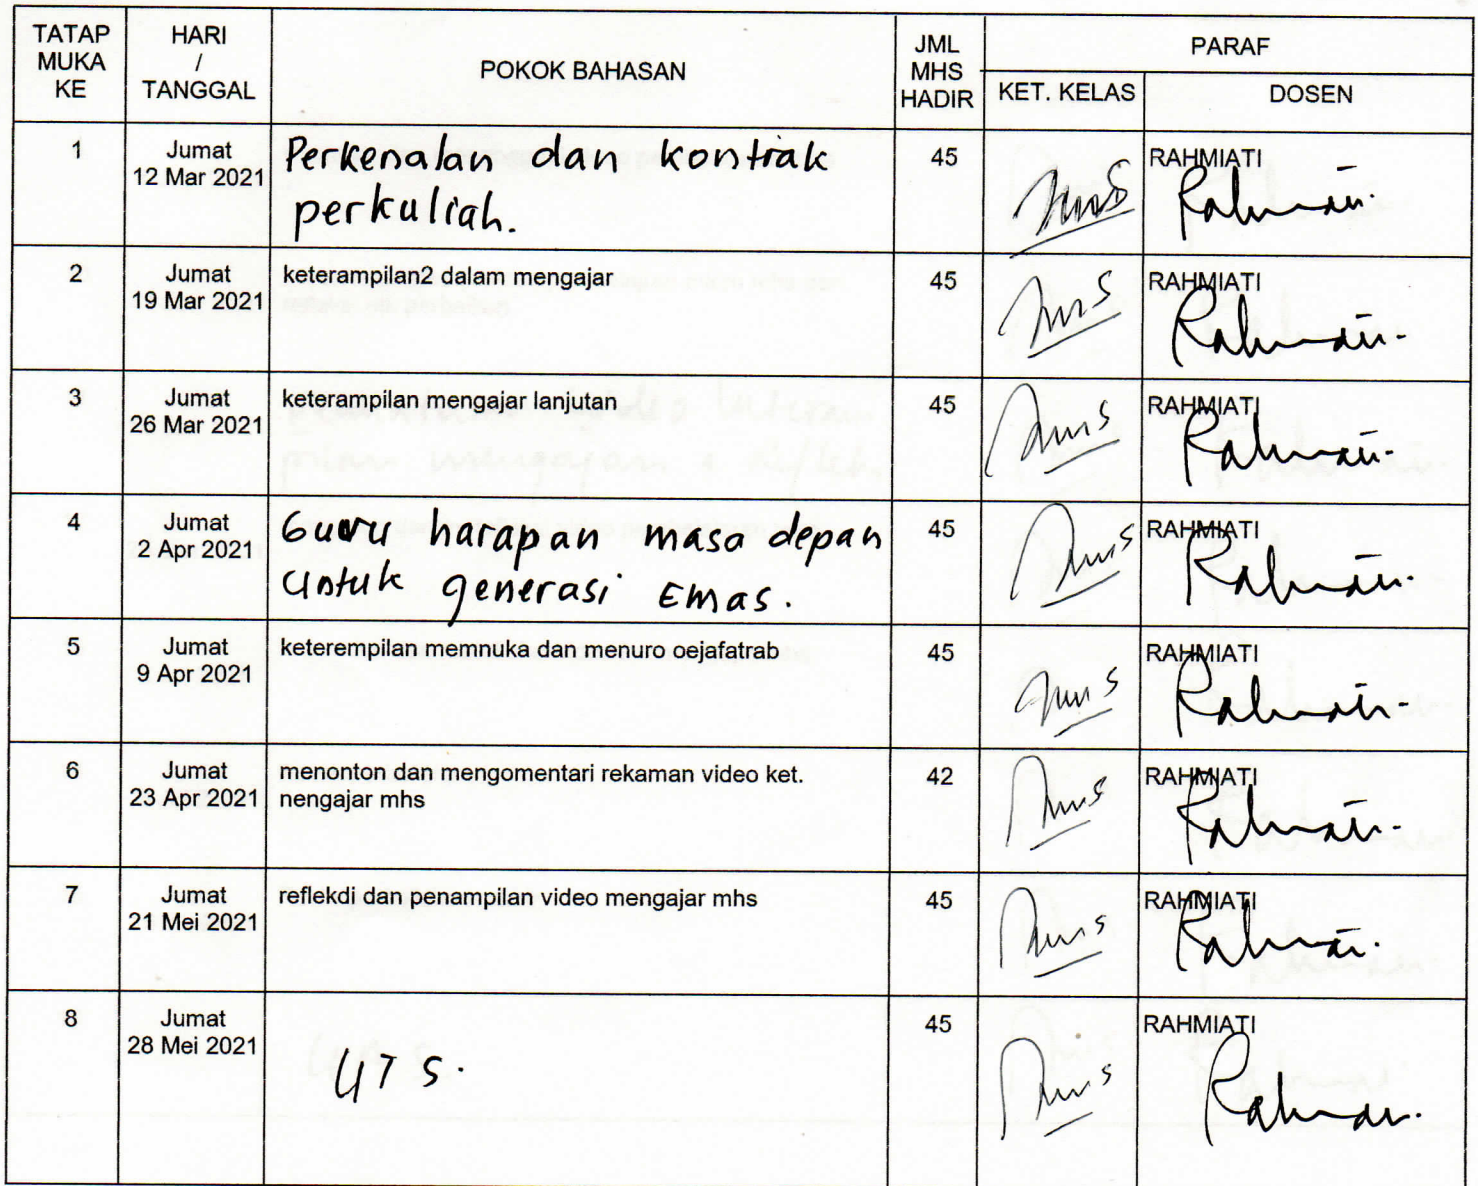 TATAP MUKA KE
HARI / TANGGAL
POKOK BAHASAN
JML MHS HADIR
PARAF
KET. KELAS
DOSEN
1
Jumat
12 Mar 2021
Perkenalan dan kontrak
perkuliah.
45
RAHMIATI
2
Jumat
19 Mar 2021
keterampilan2 dalam mengajar
45
RAHMIATI
3
Jumat
26 Mar 2021
keterampilan mengajar lanjutan
45
RAHMIATI
4
Jumat
2 Apr 2021
Guru harapan masa depan
untuk generasi Emas.
45
RAHMIATI
5
Jumat
9 Apr 2021
keterempilan memnuka dan menuro oejafatrab
45
RAHMIATI
6
Jumat
23 Apr 2021
menonton dan mengomentari rekaman video ket.
nengajar mhs
42
RAHMIATI
7
Jumat
21 Mei 2021
reflekdi dan penampilan video mengajar mhs
45
RAHMIATI
8
Jumat
28 Mei 2021
UTS.
45
RAHMIATI